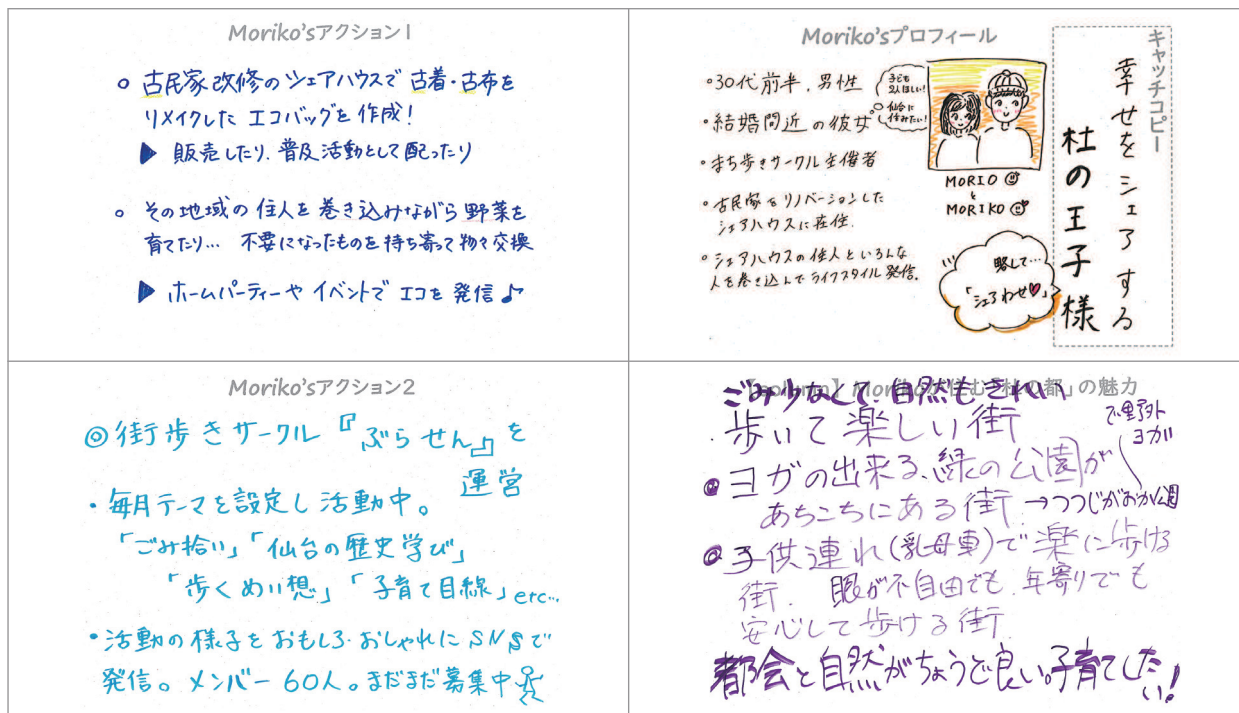 Moriko'sアクション1
○ 古民家改修のシェアハウスで古着・古布を
リメイクした エコバッグを作成!
▶ 販売したり、普及活動として配ったり
○ その地域の住人を巻き込みながら野菜を
育てたり… 不要になったものを持ち寄って物々交換
▶ ホームパーティーや イベントで エコを発信♪
Moriko'sプロフィール
○30代前半、男性
・結婚間近の彼女
・まち歩きサークル主催者
・古民家をリノベーションした
シェアハウスに在住.
○シェアハウスの住人といろんな
人を巻き込んでライフスタイル発信.
子ども
2人ほしい!
仙台に
住みたい!
MORIO
と
MORIKO
略して…
「シェアわせ♥」
キャッチコピー
幸せをシェアする
杜の王子様
Moriko'sアクション2
◎街歩きサークル『ぶらせん』を
運営
・毎月テーマを設定し活動中。
「ごみ拾い」「仙台の歴史学び」
「歩くめい想」「子育て目線」etc...
・活動の様子をおもしろ・おしゃれにSNSで
発信。メンバー60人。まだまだ募集中
【column】Morikoが住む「杜の都」の魅力
ごみ少なくて、自然もきれい
・歩いて楽しい街
で野外
ヨガ!!
●ヨガの出来る、緑の公園が
あちこちにある街 →つつじがおか公園
●子供連れ(乳母車)で楽に歩ける
街. 眼が不自由でも、年寄りでも
安心して歩ける街
都会と自然がちょうど良い。子育てしたい!